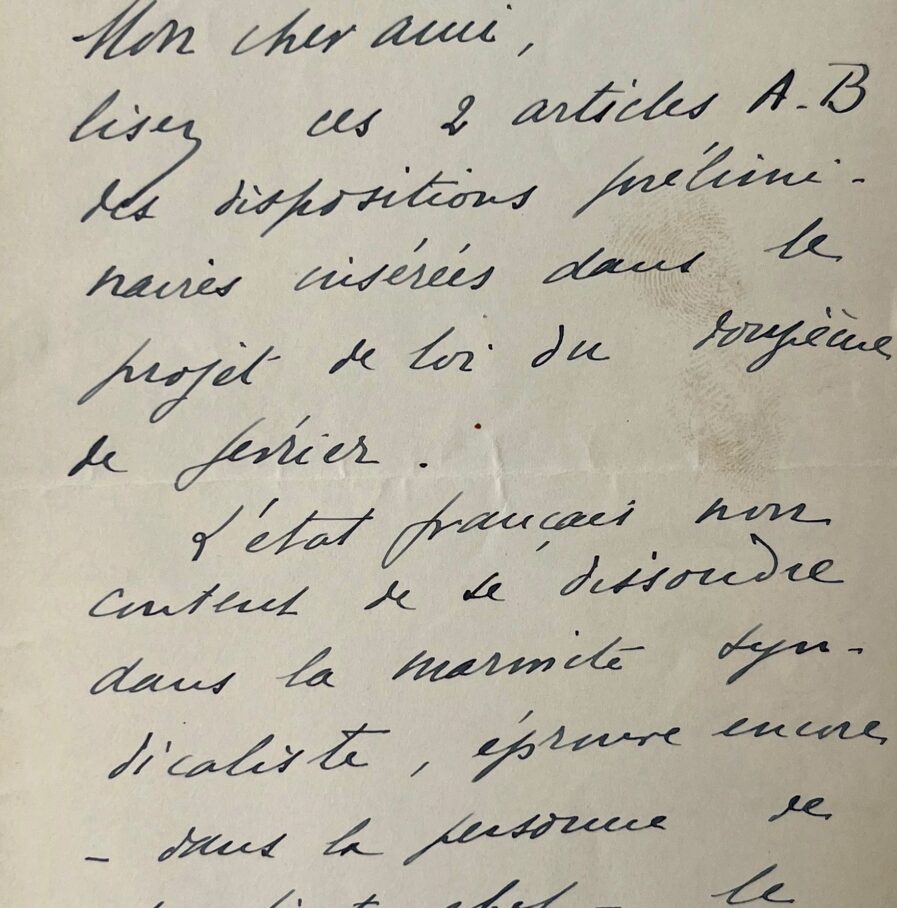 Mon cher ami,
lisez ces 2 articles A-B
des dispositions prélimi-
naires insérées dans le
projet de loi du douzième
de février.
L'état français non
content de se dissoudre
dans la marmite syn-
dicaliste, éprouve encore
- dans la personne de
le